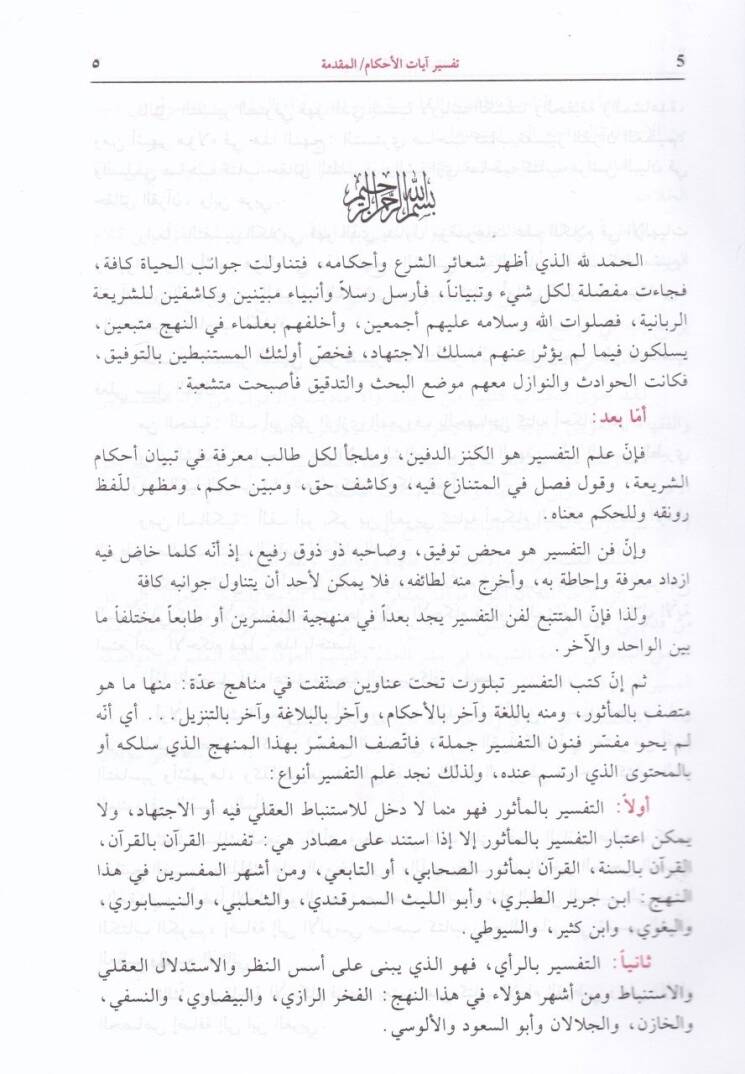 5 تفسير آيات الأحكام/المقدمة ٥
بسم الله الرحمن الرحيم
الحمد لله الذي أظهر شعائر الشرع وأحكامه، فتناولت جوانب الحياة كافة،
فجاءت مفصّلة لكل شيء وتبياناً، فأرسل رسلاً وأنبياء مبيّنين وكاشفين للشريعة
الربانية، فصلوات الله وسلامه عليهم أجمعين، وأخلفهم بعلماء في النهج متبعين،
يسلكون فيما لم يؤثر عنهم مسلك الاجتهاد، فخصّ أولئك المستنبطين بالتوفيق،
فكانت الحوادث والنوازل معهم موضع البحث والتدقيق فأصبحت متشعبة.
أمّا بعد:
فإنّ علم التفسير هو الكنز الدفين، وملجأ لكل طالب معرفة في تبيان أحكام
الشريعة، وقول فصل في المتنازع فيه، وكاشف حق، ومبيّن حكم، ومظهر للّفظ
رونقه وللحكم معناه.
وإنّ فن التفسير هو محض توفيق، وصاحبه ذو ذوق رفيع، إذ أنّه كلما خاض فيه
ازداد معرفة وإحاطة به، وأخرج منه لطائفه، فلا يمكن لأحد أن يتناول جوانبه كافة
ولذا فإنّ المتتبع لفن التفسير يجد بعداً في منهجية المفسرين أو طابعاً مختلفاً ما
بين الواحد والآخر.
ثم إنّ كتب التفسير تبلورت تحت عناوين صنّفت في مناهج عدّة: منها ما هو
متصف بالمأثور، ومنه باللغة وآخر بالأحكام، وآخر بالبلاغة وآخر بالتنزيل... أي أنّه
لم يحو مفسّر فنون التفسير جملة، فاتّصف المفسّر بهذا المنهج الذي سلكه أو
بالمحتوى الذي ارتسم عنده، ولذلك نجد علم التفسير أنواع:
أولاً: التفسير بالمأثور فهو مّما لا دخل للاستنباط العقلي فيه أو الاجتهاد، ولا
يمكن اعتبار التفسير بالمأثور إلا إذا استند على مصادر هي: تفسير القرآن بالقرآن،
القرآن بالسنة، القرآن بمأثور الصحابي، أو التابعي، ومن أشهر المفسرين في هذا
النهج: ابن جرير الطبري، وأبو الليث السمرقندي، والثعلبي، والنيسابوري،
والبغوي، وابن كثير، والسيوطي.
ثانياً: التفسير بالرأي، فهو الذي يبنى على أسس النظر والاستدلال العقلي
والاستنباط ومن أشهر هؤلاء في هذا النهج: الفخر الرازي، والبيضاوي، والنسفي،
والخازن، والجلالان وأبو السعود والألوسي.